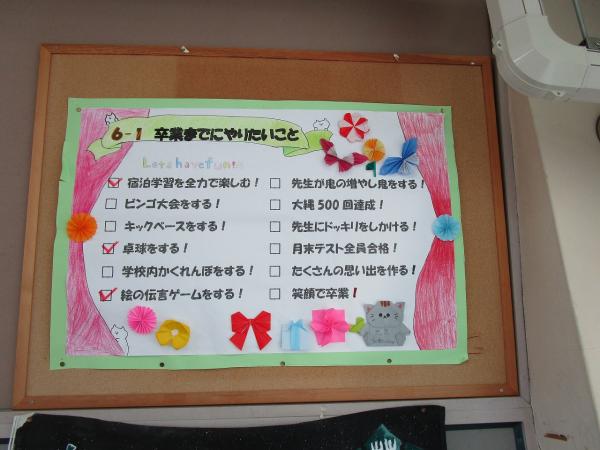 6-1 卒業までにやりたいこと
Lets have fun!!
宿泊学習を全力で楽しむ!
ビンゴ大会をする!
キックベースをする!
卓球をする!
学校内かくれんぼをする!
絵の伝言ゲームをする!
先生が鬼の増やし鬼をする!
大縄500回達成!
先生にドッキリをしかける!
月末テスト全員合格!
たくさんの思い出を作る!
笑顔で卒業!